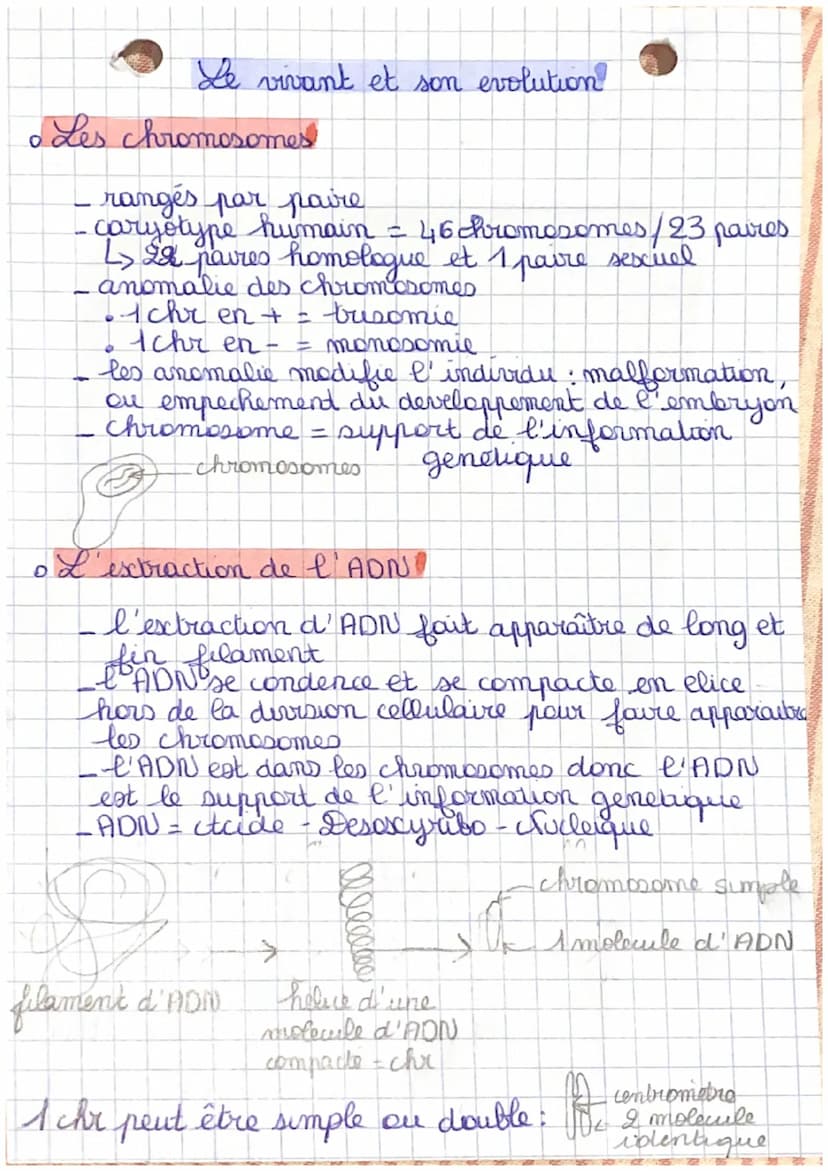 Le vivant et son evolution
Les chromosomes
- rangés par paire
- caryotype humain = 46 chromosomes / 23 paires
↳ 22 paires homologue et 1 paire sexuel
- anomalie des chromosomes
• 1 chr en + = trisomie
• 1 chr en - = monosomie
- les anomalie modifie l'individu : malformation,
ou empechement du developpement de l'embryon
- chromosome = support de l'information
genetique
chromosomes
L'extraction de l'ADN
- l'extraction d'ADN fait apparaître de long et
fin filament
- l'ADN se condence et se compacte en elice
hors de la division cellulaire pour faire apparaitre
les chromosomes
- l'ADN est dans les chromosomes donc l'ADN
est le support de l'information genetique
- ADN = Acide - Desoxyribo - Nucleique
chromosome simple
1 molecule d'ADN
filament d'ADN
helice d'une
molecule d'ADN
compacte = chr
1 chr peut être simple ou double :
centrometre
2 molecule
identique